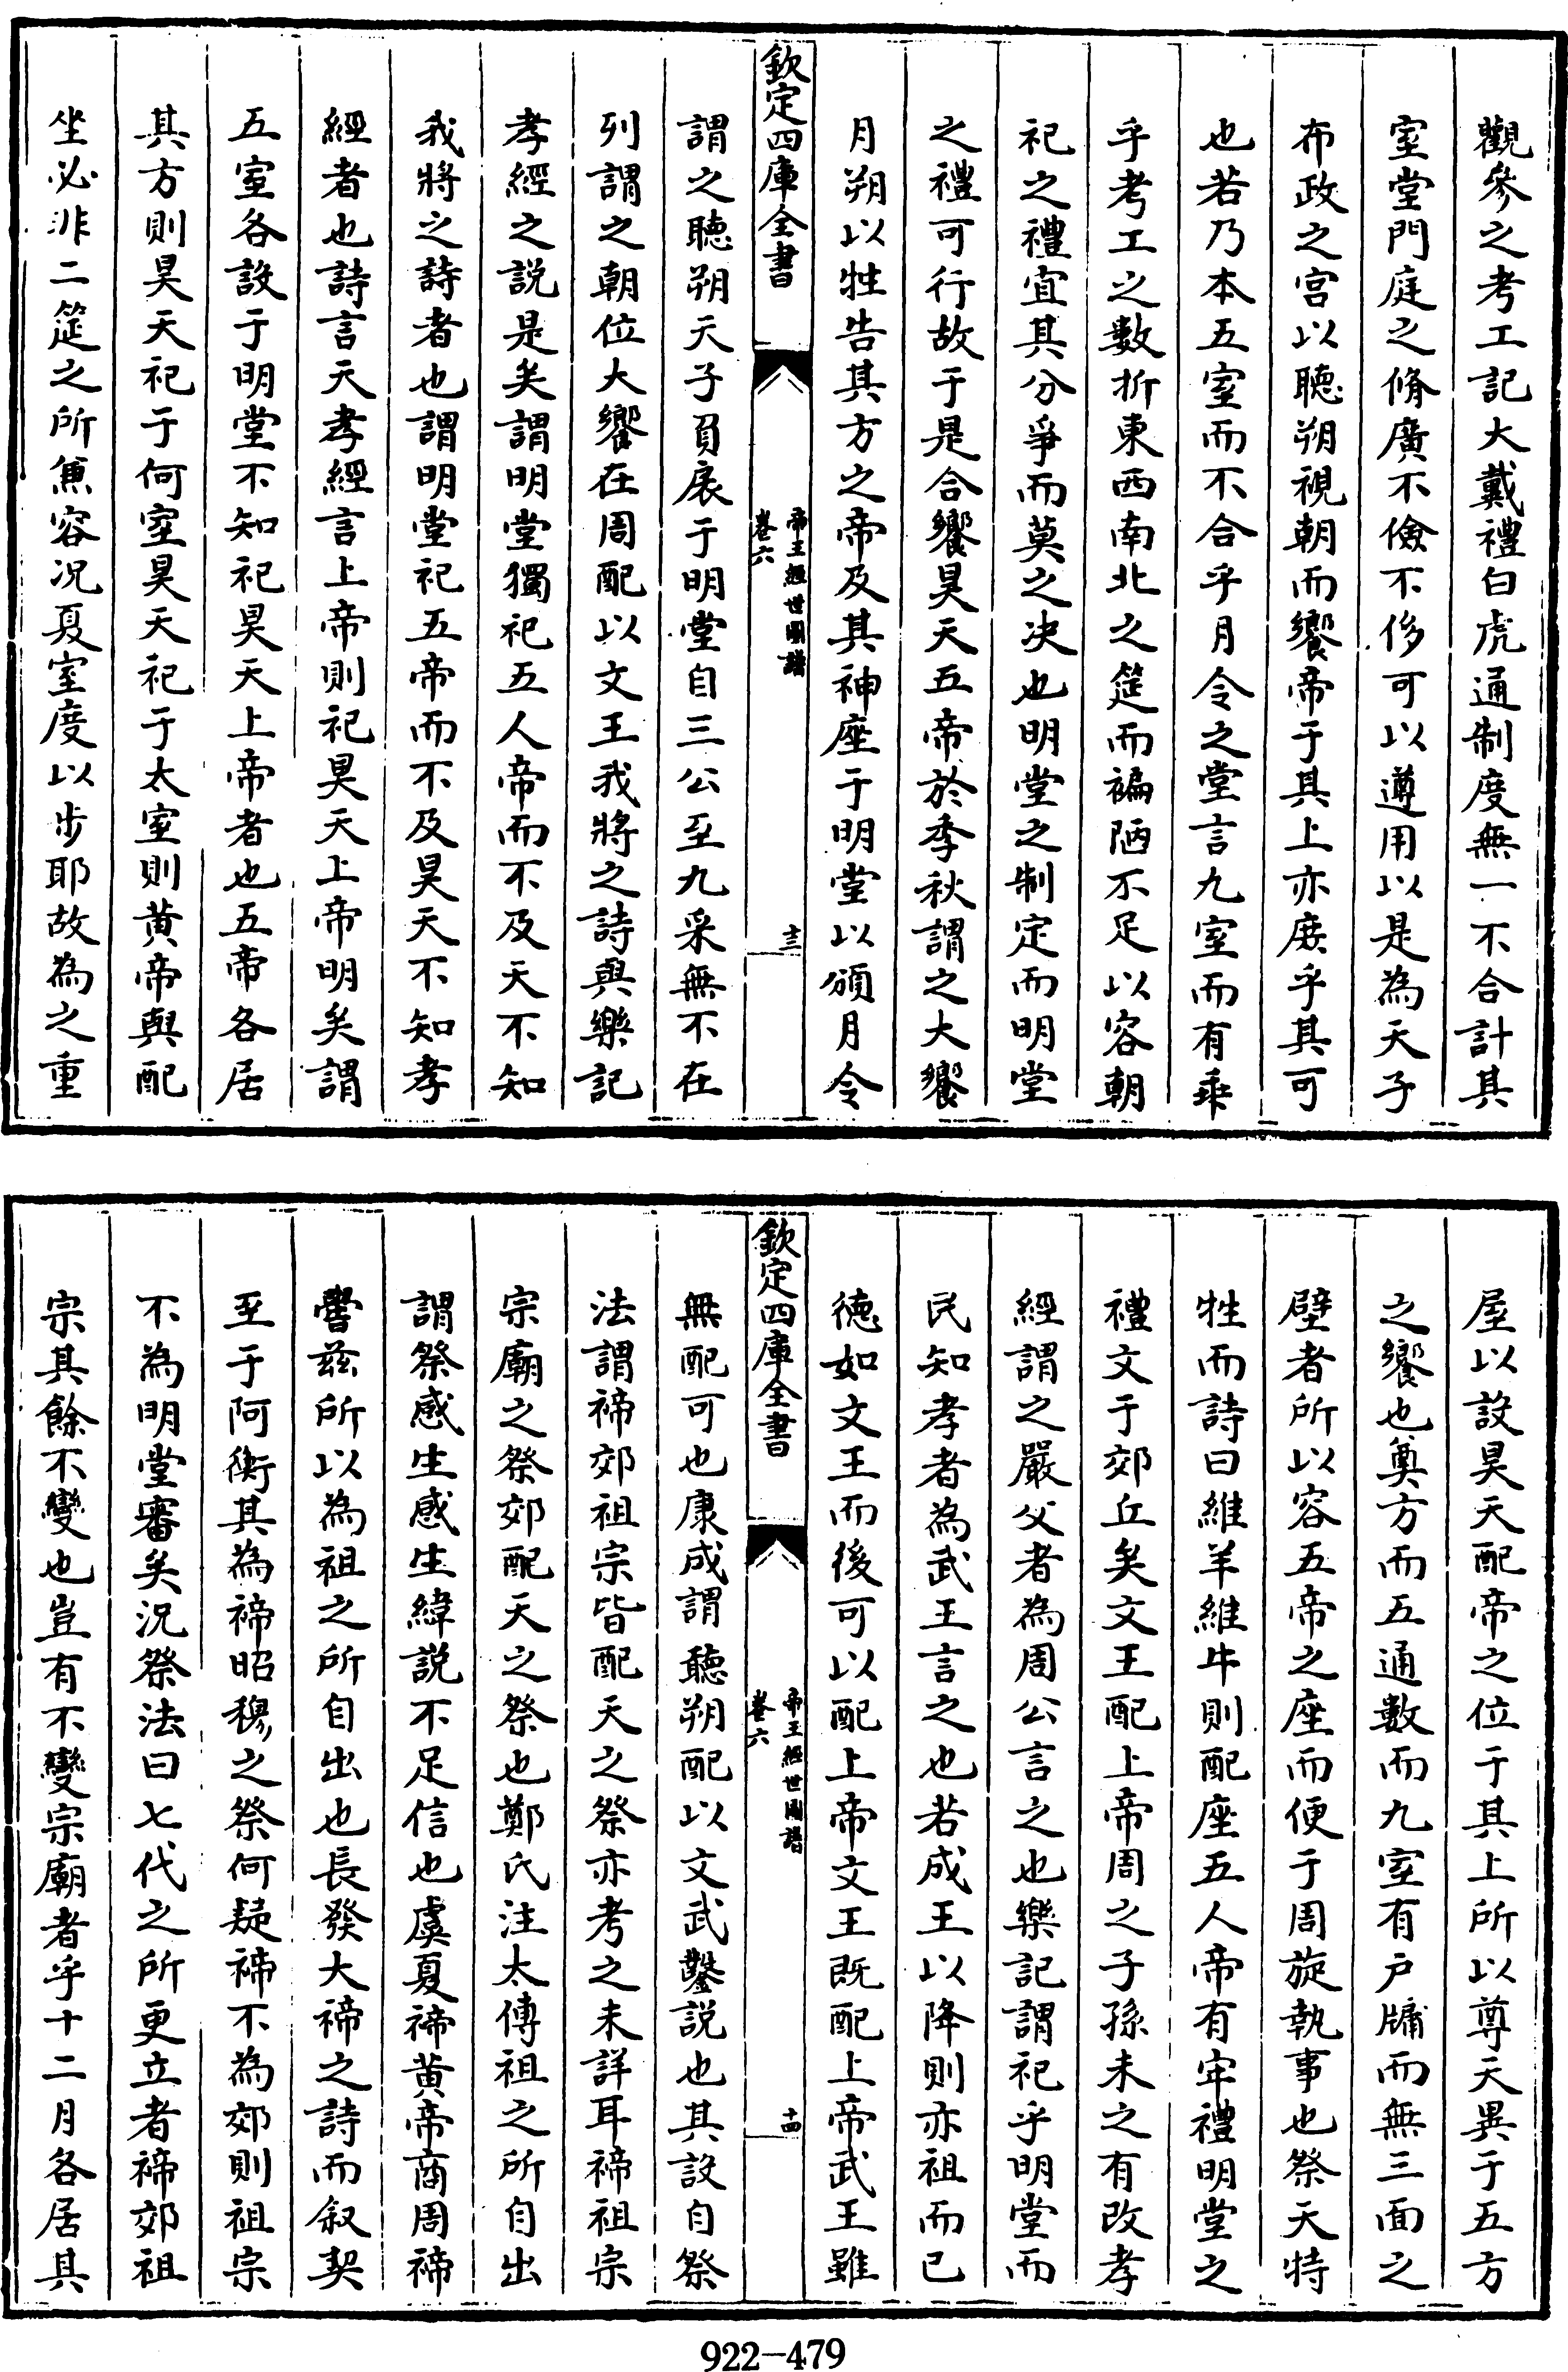 觀參之考工記大戴禮白虎通制度無一不合計其
室堂門庭之脩廣不儉不侈可以遵用以是為天子
布政之宫以聽朔視朝而饗帝于其上亦庶乎其可
也若乃本五室而不合乎月令之堂言九室而有乖
乎考工之數折東西南北之筵而褊陋不足以容朝
祀之禮宜其分爭而莫之决也明堂之制定而明堂
之禮可行故于是合饗昊天五帝於季秋謂之大饗
月朔以牲告其方之帝及其神座于明堂以頒月令
欽定四庫全書
帝王經世圖譜
卷六
十三
謂之聽朔天子負扆于明堂自三公至九采無不在
列謂之朝位大饗在周配以文王我將之詩與樂記
孝經之説是矣謂明堂獨祀五人帝而不及天不知
我將之詩者也謂明堂祀五帝而不及昊天不知孝
經者也詩言天孝經言上帝則祀昊天上帝明矣謂
五室各設于明堂不知祀昊天上帝者也五帝各居
其方則昊天祀于何室昊天祀于太室則黄帝與配
坐必非二筵之所兼容况夏室度以步耶故為之重
屋以設昊天配帝之位于其上所以尊天異于五方
之饗也奠方而五通數而九室有户牖而無三面之
壁者所以容五帝之座而便于周旋執事也祭天特
牲而詩曰維羊維牛則配座五人帝有牢禮明堂之
禮文于郊丘矣文王配上帝周之子孫未之有改孝
經謂之嚴父者為周公言之也樂記謂祀乎明堂而
民知孝者為武王言之也若成王以降則亦祖而已
德如文王而後可以配上帝文王既配上帝武王雖
欽定四庫全書
帝王經世圖譜
卷六
十四
無配可也康成謂聽朔配以文武鑿説也其設自祭
法謂禘郊祖宗皆配天之祭亦考之未詳耳禘祖宗
宗廟之祭郊配天之祭也鄭氏注太傳祖之所自出
謂祭感生感生緯説不足信也虞夏禘黄帝商周禘
嚳兹所以為祖之所自出也長發大禘之詩而叙契
至于阿衡其為禘昭穆之祭何疑禘不為郊則祖宗
不為明堂審矣况祭法曰七代之所更立者禘郊祖
宗其餘不變也豈有不變宗廟者乎十二月各居其
922-479